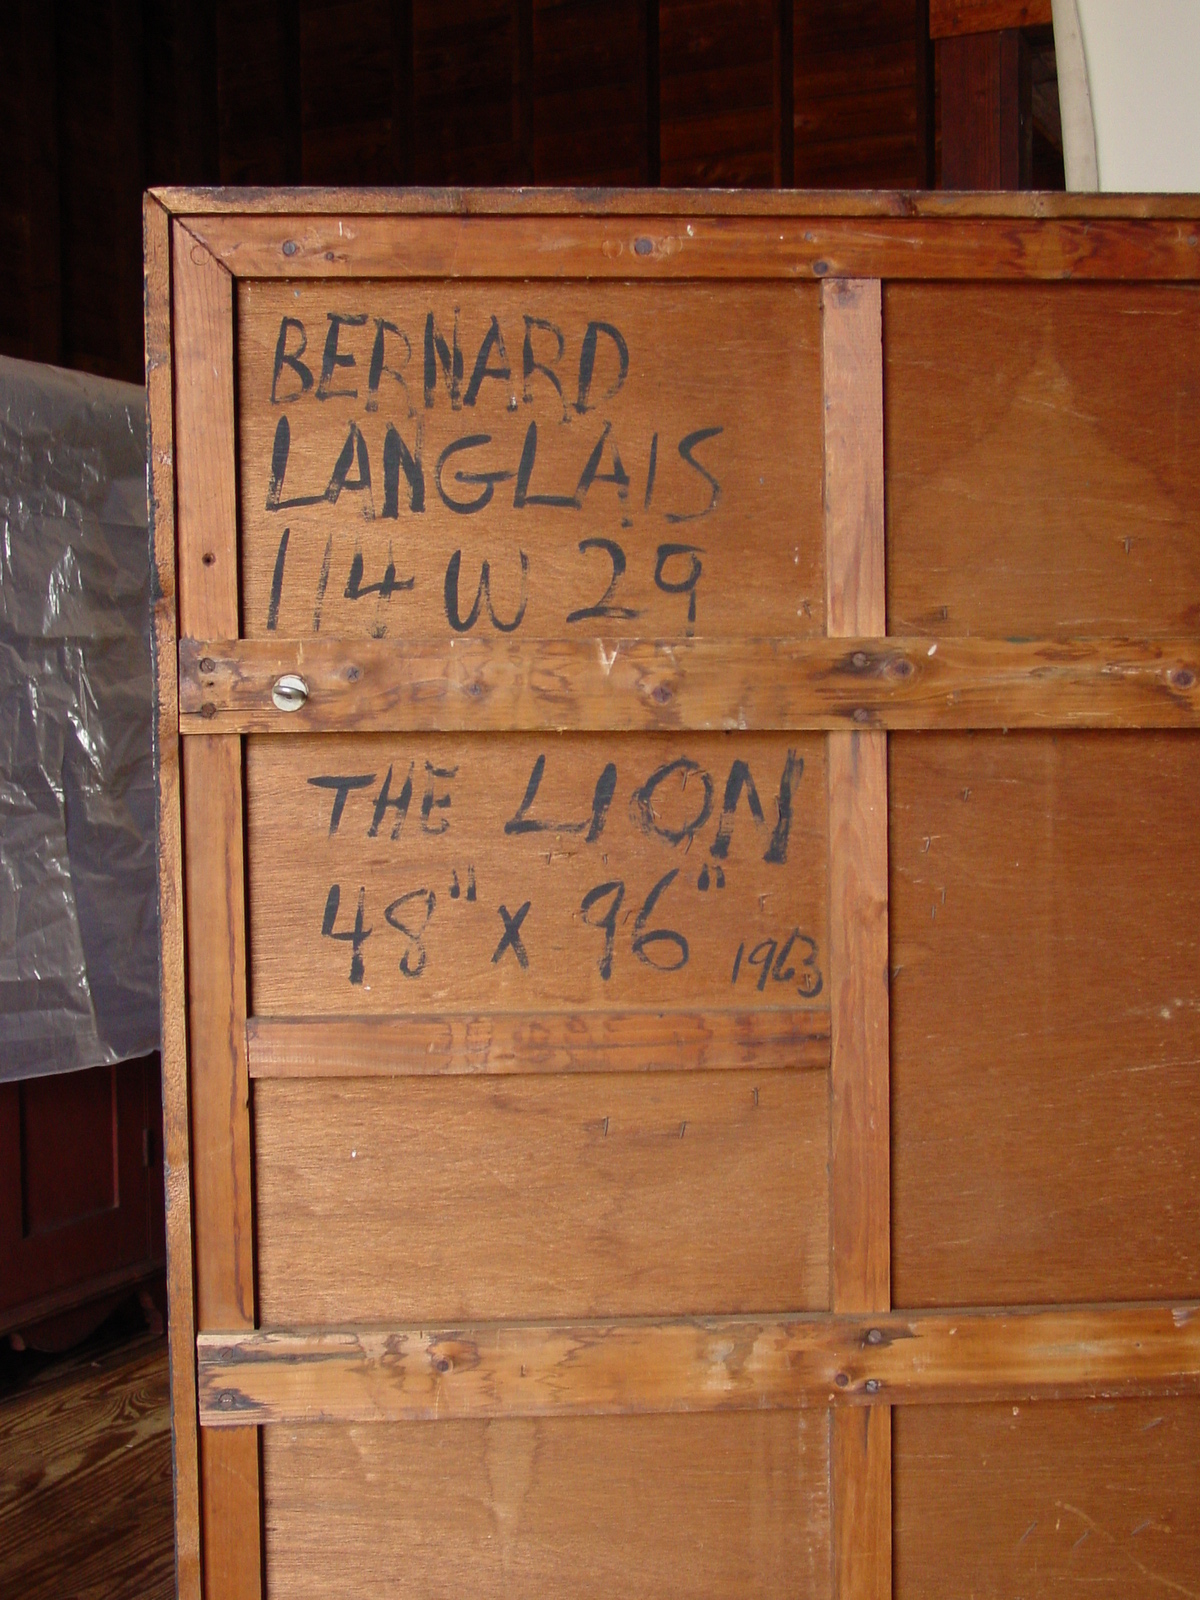 BERNARD
LANGLAIS
114 W 29
THE LION
48" x 96" 1963